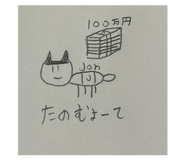 100万円
Jon
たのむょーて